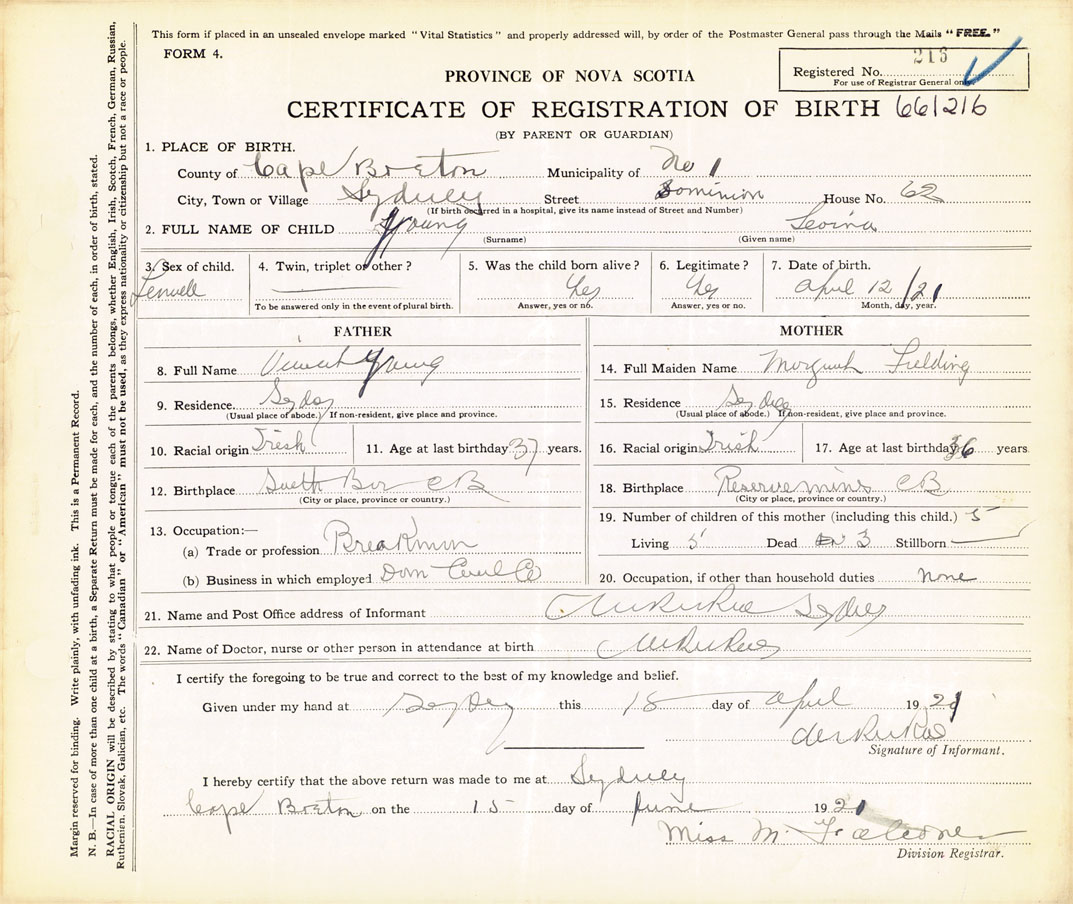 This form if placed in an unsealed envelope marked "Vital Statistics" and properly addressed will, by order of the Postmaster General pass through the Mails "FREE."
FORM 4.
Registered No. 216
For use of Registrar General only
PROVINCE OF NOVA SCOTIA
CERTIFICATE OF REGISTRATION OF BIRTH 661216
(BY PARENT OR GUARDIAN)
1. PLACE OF BIRTH.
County of Cape Breton Municipality of No 1
City, Town or Village Sydney Street Dominion House No. 62
(If birth occurred in a hospital, give its name instead of Street and Number)
2. FULL NAME OF CHILD Young
(Surname) (Given name)
3. Sex of child. 4. Twin, triplet or other? 5. Was the child born alive? 6. Legitimate? 7. Date of birth.
Yes Yes April 12/21
To be answered only in the event of plural birth. Answer, yes or no. Answer, yes or no. Month, day, year.
FATHER
8. Full Name Young
9. Residence.
(Usual place of abode.) If non-resident, give place and province.
10. Racial origin Irish 11. Age at last birthday 37 years.
12. Birthplace CB
(City or place, province or country.)
13. Occupation:—
(a) Trade or profession Breakmun
(b) Business in which employed Dom Coal Co
MOTHER
14. Full Maiden Name Fielding
15. Residence
(Usual place of abode.) If non-resident, give place and province.
16. Racial origin Irish 17. Age at last birthday 36 years
18. Birthplace Reserve mins CB
(City or place, province or country.)
19. Number of children of this mother (including this child.) 5
Living 5 Dead 3 Stillborn
20. Occupation, if other than household duties None
21. Name and Post Office address of Informant Sydney
22. Name of Doctor, nurse or other person in attendance at birth
I certify the foregoing to be true and correct to the best of my knowledge and belief.
Given under my hand at Sydney this 18 day of April 1921
Signature of Informant.
I hereby certify that the above return was made to me at Sydney
Cape Breton on the 15 day of June 1921
Miss M.
Division Registrar.
Margin reserved for binding. Write plainly, with unfading ink. This is a Permanent Record.
N. B.—In case of more than one child at a birth, a Separate Return must be made for each, and the number of each, in order of birth, stated.
RACIAL ORIGIN will be described by stating to what people or tongue each of the parents belongs, whether English, Irish, Scotch, French, German, Russian,
Ruthenien, Slovak, Galician, etc. The words "Canadian" or "American" must not be used, as they express nationality or citizenship but not a race or people.